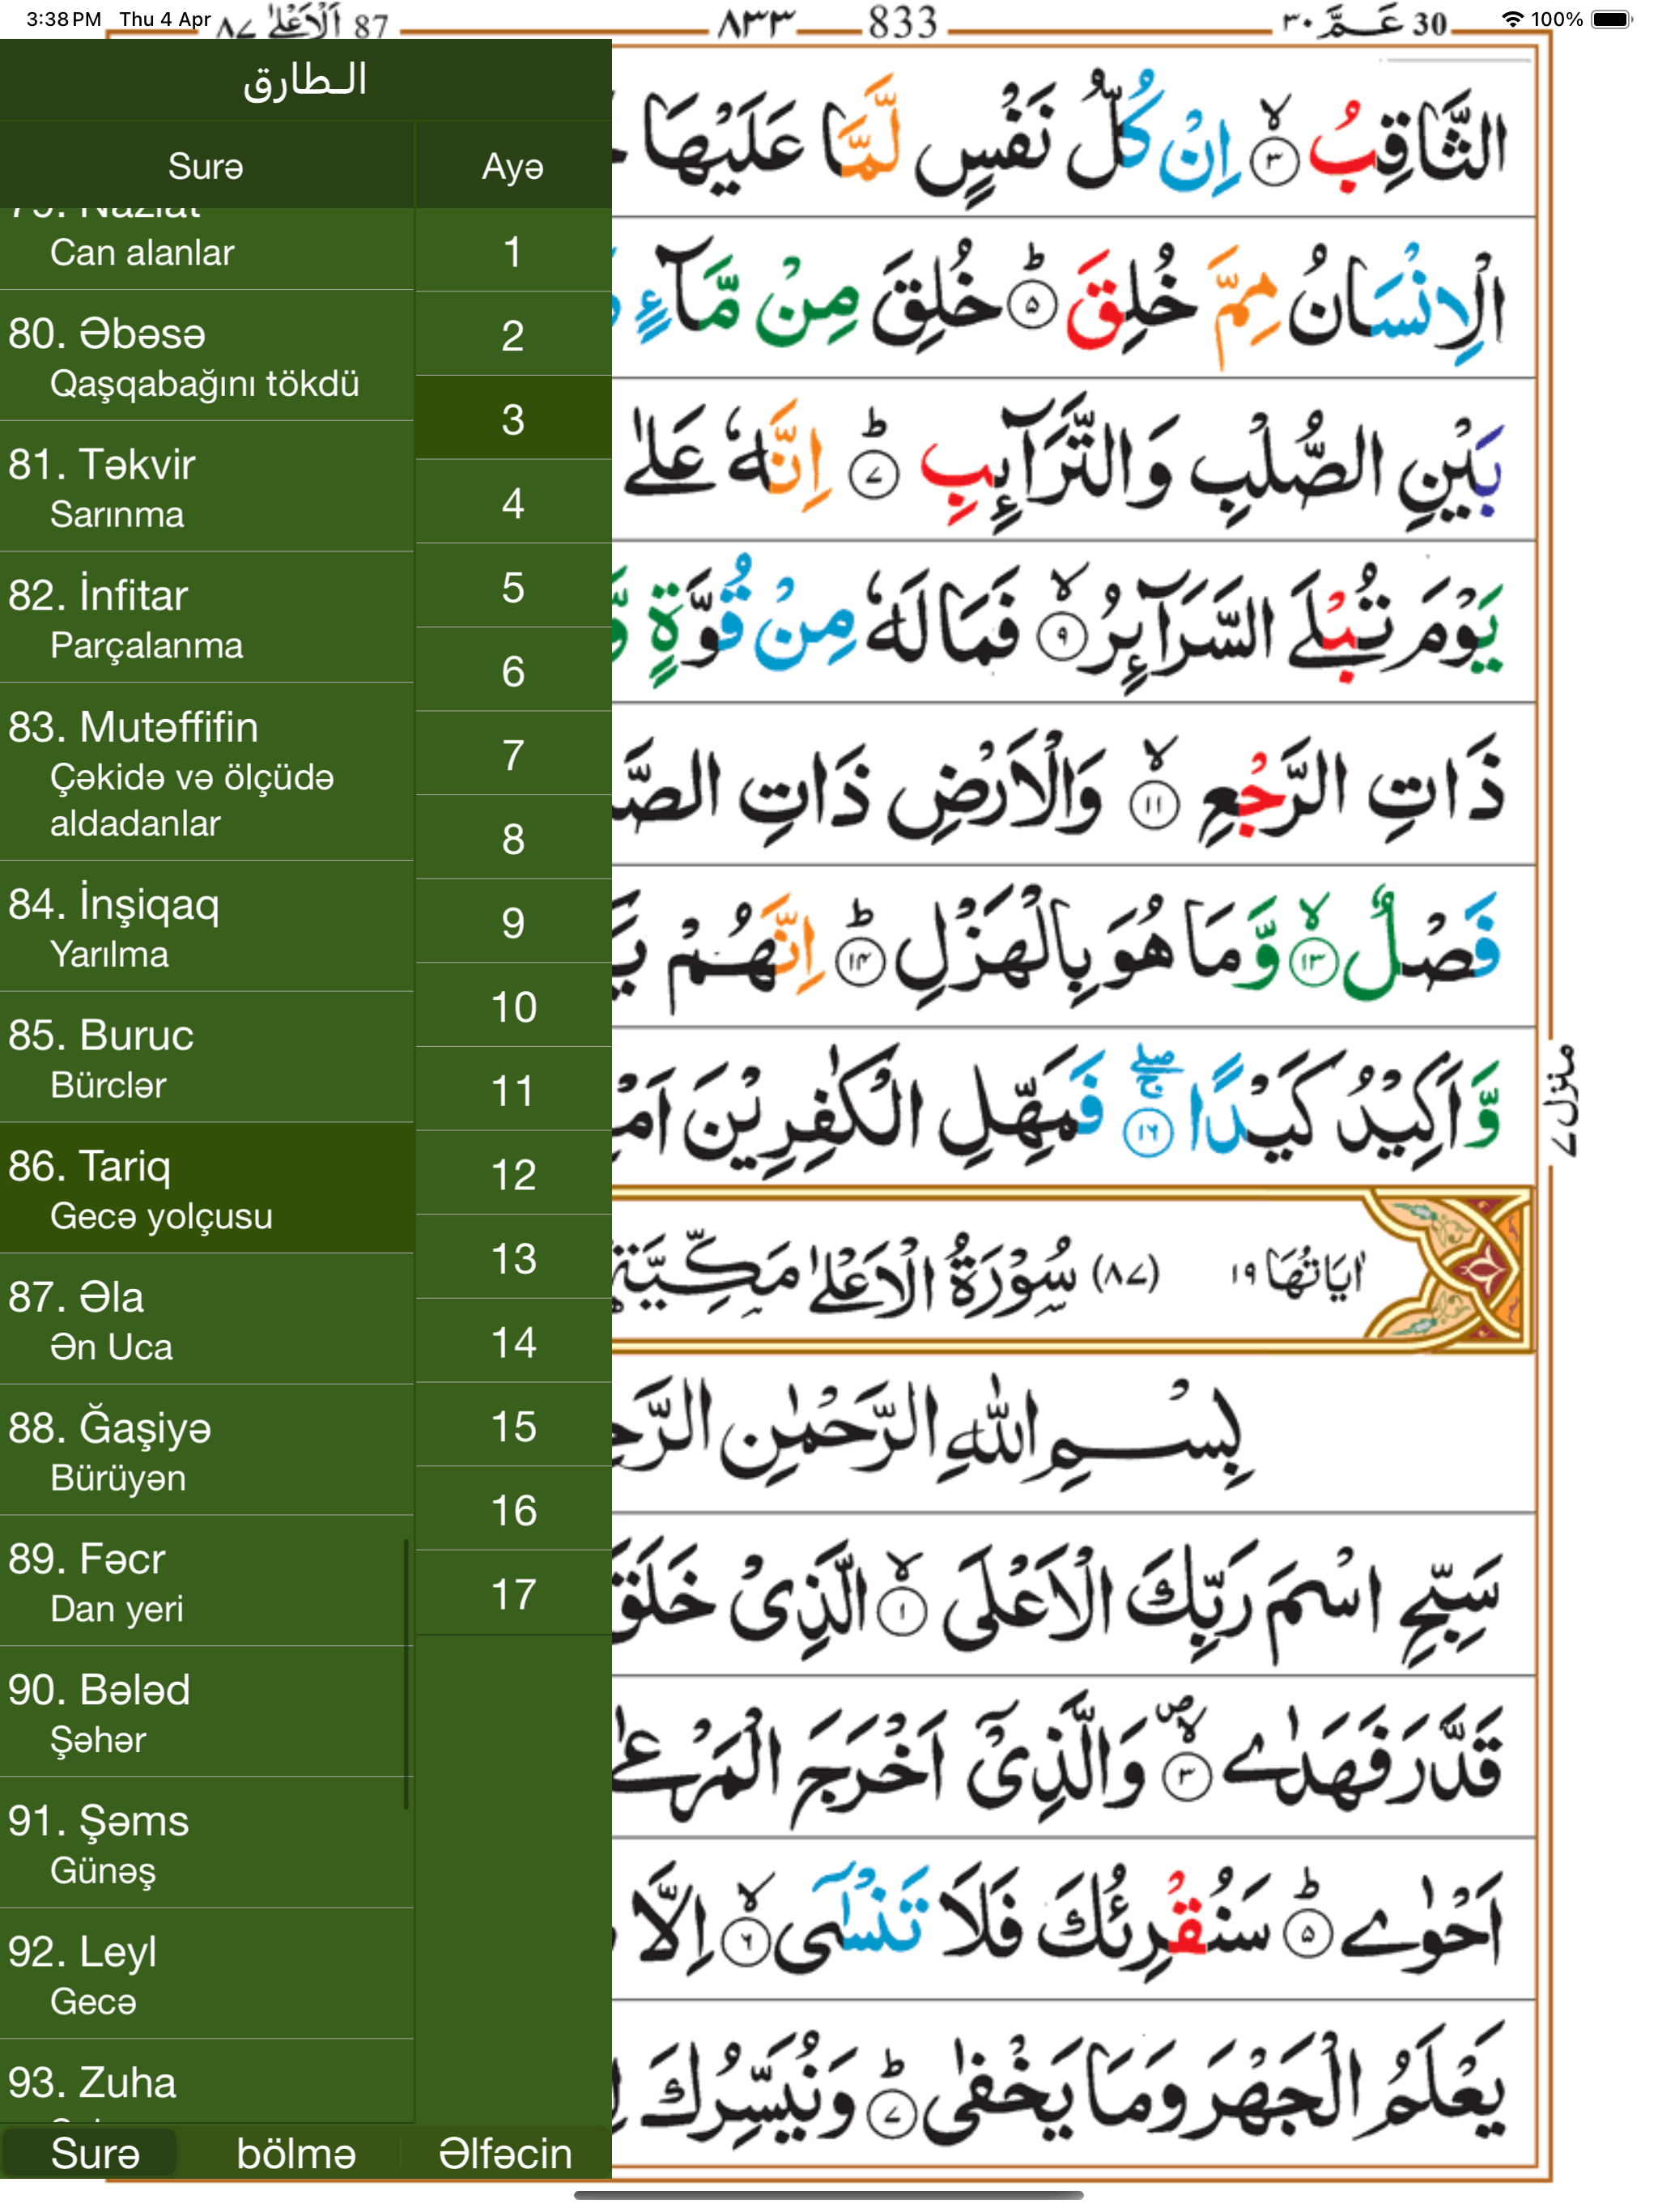 3:38 PM Thu 4 Apr
100%
87 اَلْاَعْلٰى ٨٧
٨٣٣ 833
30 عَمَّ ٣٠
الـطارق
Surə
Ayə
Can alanlar
80. Əbəsə
Qaşqabağını tökdü
81. Təkvir
Sarınma
82. İnfitar
Parçalanma
83. Mutəffifin
Çəkidə və ölçüdə
aldadanlar
84. İnşiqaq
Yarılma
85. Buruc
Bürclər
86. Tariq
Gecə yolçusu
87. Əla
Ən Uca
88. Ğaşiyə
Bürüyən
89. Fəcr
Dan yeri
90. Bələd
Şəhər
91. Şəms
Günəş
92. Leyl
Gecə
93. Zuha
1
2
3
4
5
6
7
8
9
10
11
12
13
14
15
16
17
Surə
bölmə
Əlfəcin
الثَّاقِبُ ۙ‏ ٣ اِنْ كُلُّ نَفْسٍ لَّمَّا عَلَيْهَا
الْاِنْسَانُ مِمَّ خُلِقَ ؕ‏ ٥ خُلِقَ مِنْ مَّآءٍ
بَيْنِ الصُّلْبِ وَالتَّرَآئِبِ ؕ‏ ٧ اِنَّهٗ عَلٰى
يَوْمَ تُبْلَى السَّرَآئِرُ ۙ‏ ٩ فَمَا لَهٗ مِنْ قُوَّةٍ
ذَاتِ الرَّجْعِ ۙ‏ ١١ وَالْاَرْضِ ذَاتِ
فَصْلٌ ۙ‏ ١٣ وَّمَا هُوَ بِالْهَزْلِ ؕ‏ ١٤ اِنَّهُمْ
وَّاَكِيْدُ كَيْدًا ۖۚ‏ ١٦ فَمَهِّلِ الْكٰفِرِيْنَ
اٰيَاتُهَا ١٩ (٨٧) سُوْرَةُ الْاَعْلٰى مَكِّيَّةٌ
بِسْمِ اللّٰهِ الرَّحْمٰنِ
سَبِّحِ اسْمَ رَبِّكَ الْاَعْلَى ۙ‏ ١ الَّذِىْ خَلَقَ
قَدَّرَ فَهَدٰى ۙ‏ ٣ وَالَّذِىْۤ اَخْرَجَ الْمَرْعٰى
اَحْوٰى ؕ‏ ٥ سَنُقْرِئُكَ فَلَا تَنْسٰٓى ۙ‏ ٦ اِلَّا
يَعْلَمُ الْجَهْرَ وَمَا يَخْفٰى ؕ‏ ٧ وَنُيَسِّرُكَ
منزل ٧